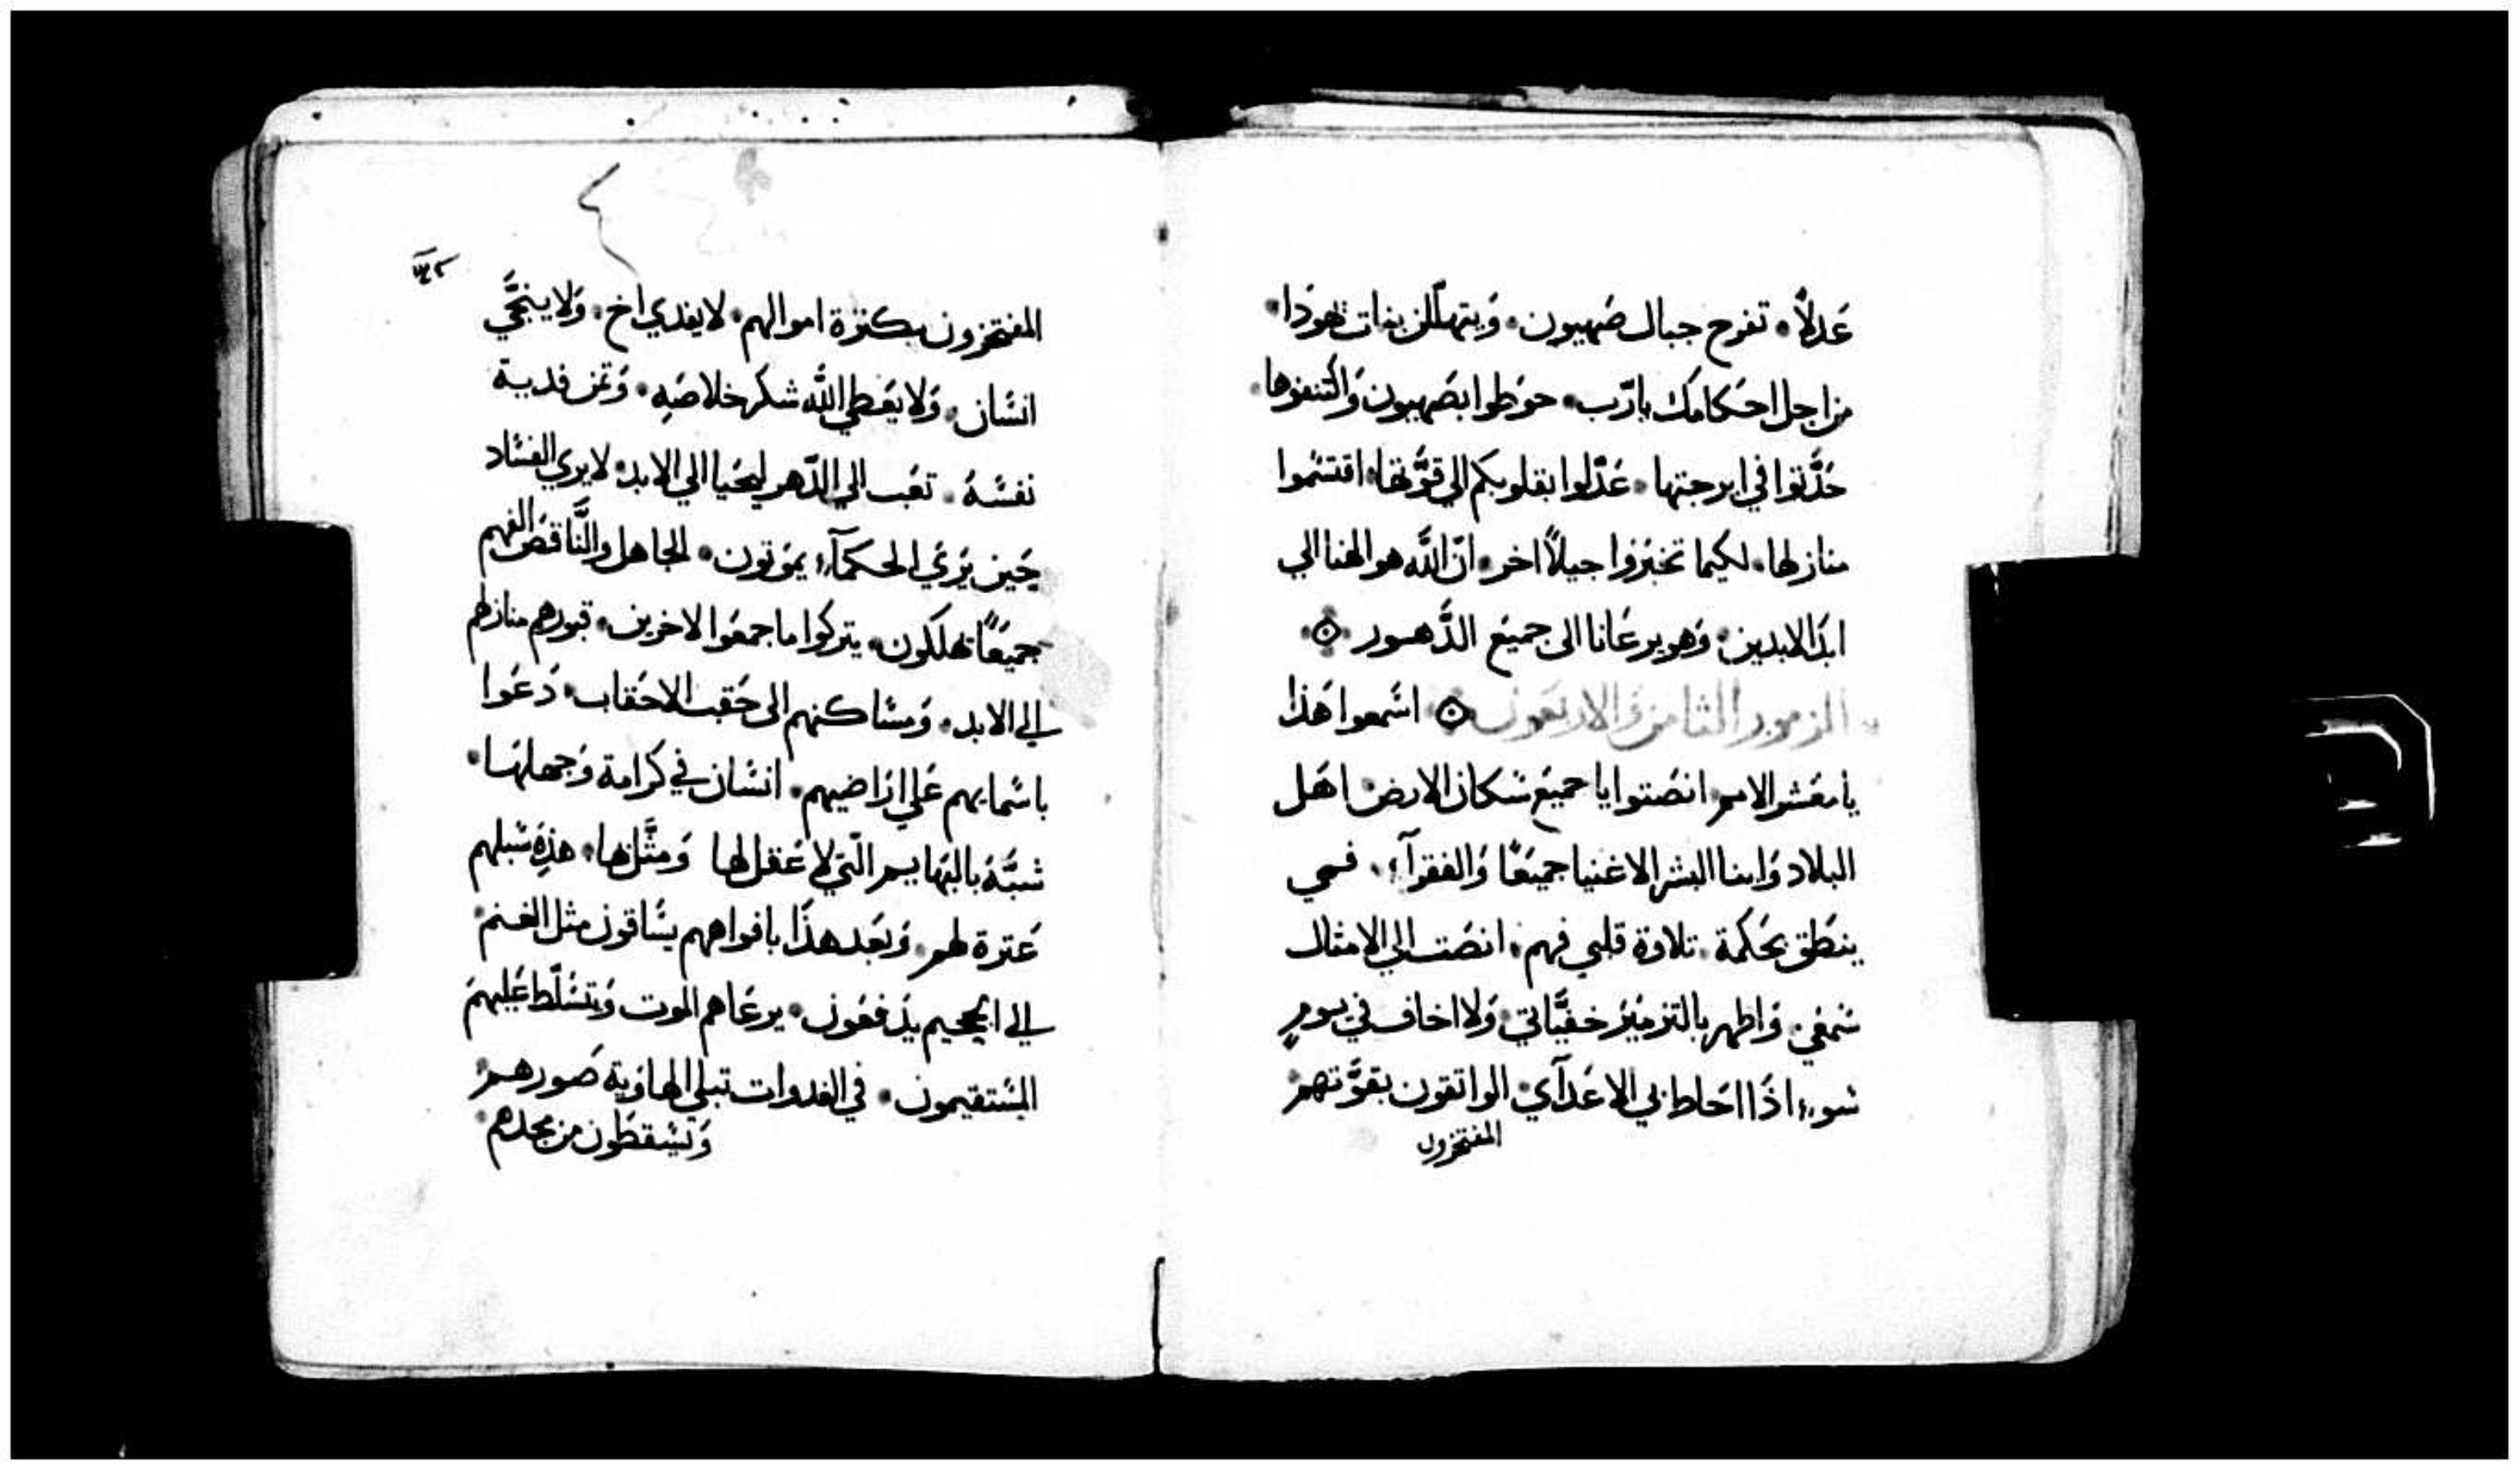 عَدلاً. تفرح جبال صَهيون. وَيتهلّلن بنات يَهوذا.
من اجل احكامك يارّب. حوَطوا بصَهيون وَاكتنفوها.
حَدّثوا في ابرجتها. عَدّلوا بقلوبكم الي قوَّتها. اقتسَموا
منازلها. لكيما تخبَروا جيلاً اخر. انّ اللّه هو الهنا الي
ابَد الابدين. وَهو يرعَانا الى جميعَ الدَّهور.
المزمور الثامن وَالاربعَون اسَمعوا هَذا
يا معَشر الامم انصَتوا يا جميعَ سَكان الارض. اهَل
البلاد وَابنا البشر الاغنيا جميعَا وَالفقرآء. فمي
ينطَق بحَكمة. تلاوة قلبي فهم. انصَت الي الامثال
سَمعَي. وَاظهر بالتزميَر خفيَّاتي. وَلا اخاف في يومٍ
سَوء. اذَا احَاط بي الاعَدآي. الواثقون بقوَّتهم
المفتخرون
٤٢
المفتخرون بكثرة اموالهم. لا يفدي اخ. وَلا ينجَّي
انسَان. وَلا يعَطي اللّه شكر خلاصَه. وَثمن فدية
نفسَهُ. تعَب الي الدّهر ليحَيا الي الابد. لا يري الفسَاد
حَين يَرَي الحكمآء يمَوتون. الجاهل والنَّاقصَ الفهم
جميعَاً يَهلكون. يتركوا ما جمعَوا لاخرين. قبورهم منازلهم
الي الابد. وَمسَاكنهم الى حَقب الاحقَاب. دَعَوا
باسَمايهم عَلي ارَاضيهم. انسَان في كرامة وَجهلهَا.
شبَّهَ بالبَهايم الّتي لا عَقل لها وَمثَّلها. هذِهَ سَبلهم
عَثرة لهم. وَبعَد هذَا بافواههم يسَاقون مثل الغنم.
الي الجحَيم يدَفعَون. يرعَاهم الموت وَيتسَلّط عَليهم
المسَتقيمون. في الغدوات تبلي الهاوَية صَورهم.
وَيسَقطَون من مجدهم.